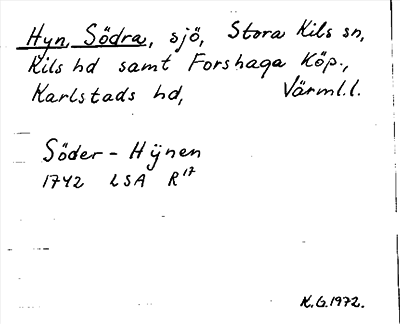 Hyn, Södra, sjö, Stora Kils sn,
Kils hd samt Forshaga Köp.,
Karlstads hd, Värml.l.
Söder-Hÿnen
1742 LSA R17
K.G.1972.